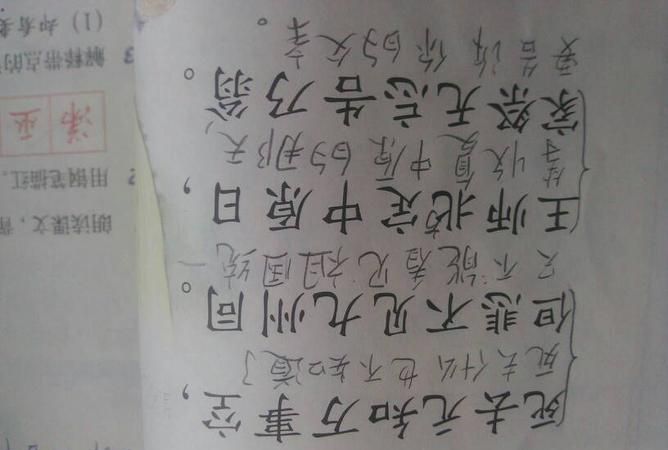 死去元知万事空，
死去什么也不知道了
但悲不见九州同。
只不能看见祖国统一
王师北定中原日，
收复中原的那天
家祭无忘告乃翁。
要告诉你的父亲。
朗读课文，背
2 用钢笔描红.
涕 巫
3 解释带点的
(1) 却看妻